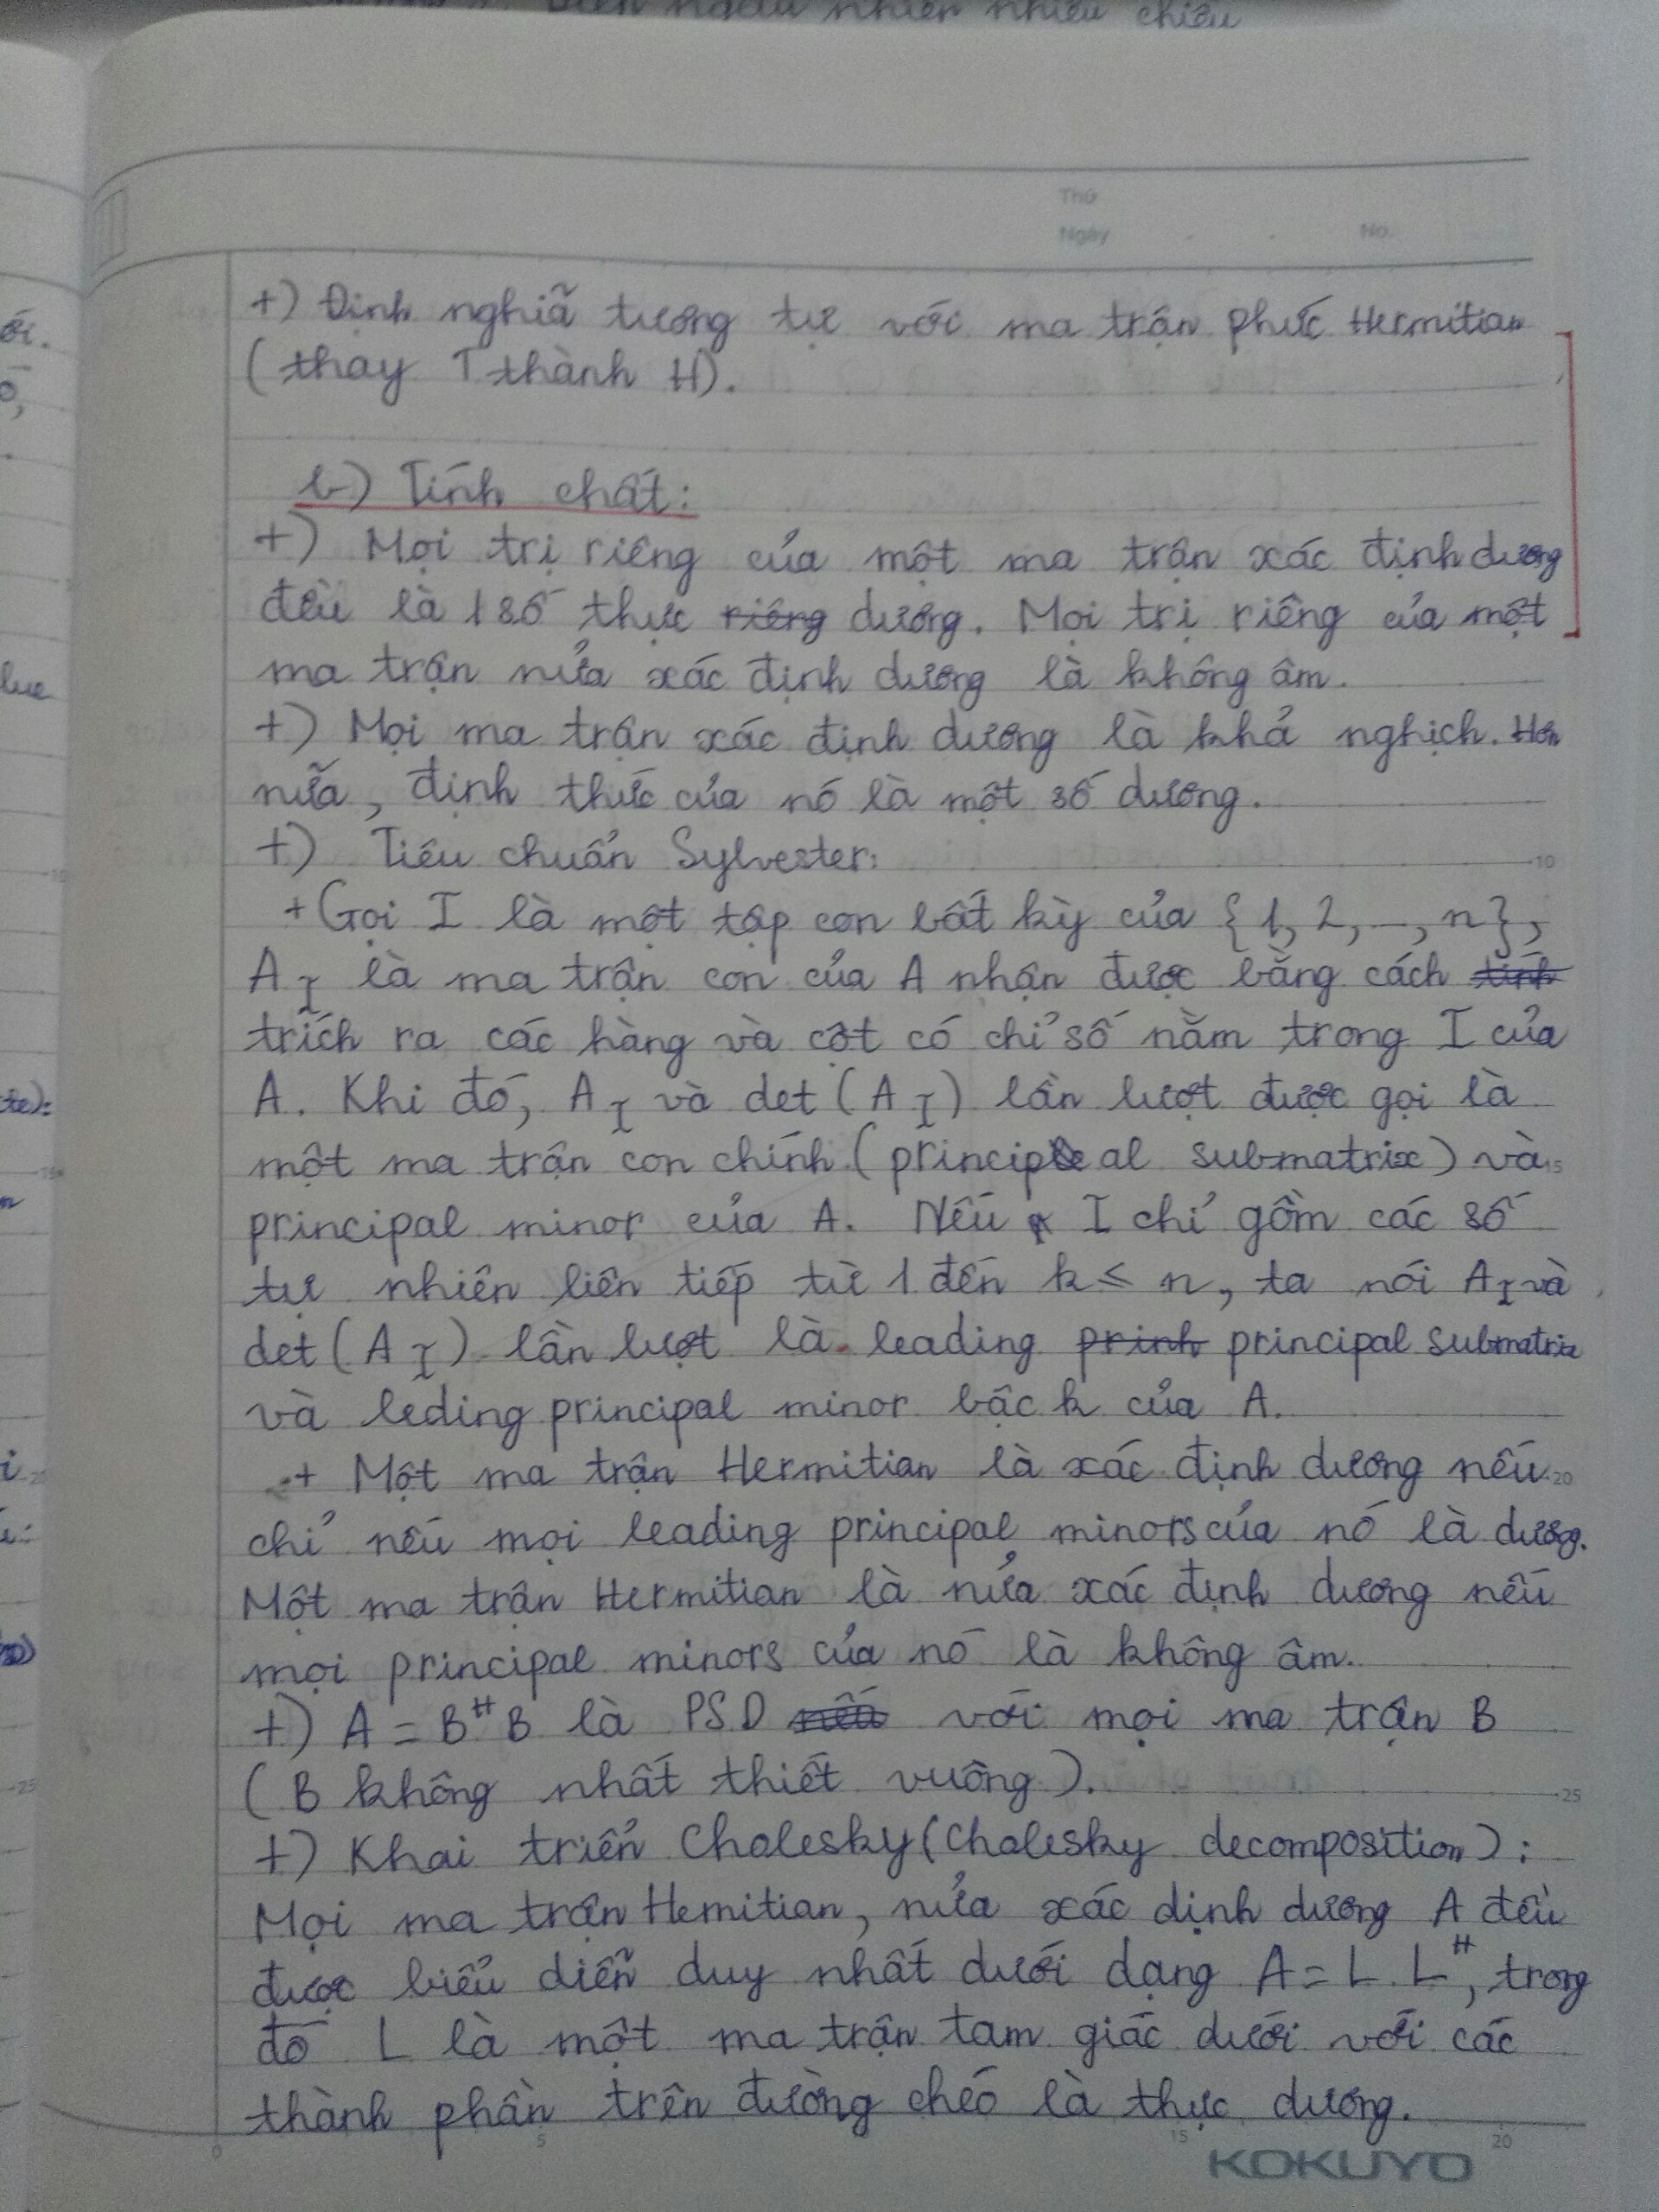 nhiên nhiều chiều
Thứ
Ngày . . No.
+) Định nghĩa tương tự với ma trận phức Hermitian
(thay T thành H).
b) Tính chất:
+) Mọi trị riêng của một ma trận xác định dương
đều là 1 số thực riêng dương. Mọi trị riêng của một
ma trận nửa xác định dương là không âm.
+) Mọi ma trận xác định dương là khả nghịch. Hơn
nữa, định thức của nó là một số dương.
+) Tiêu chuẩn Sylvester:
+ Gọi I là một tập con bất kỳ của {1, 2, ..., n},
A_I là ma trận con của A nhận được bằng cách tính
trích ra các hàng và cột có chỉ số nằm trong I của
A. Khi đó, A_I và det(A_I) lần lượt được gọi là
một ma trận con chính (principal submatrix) và
principal minor của A. Nếu I chỉ gồm các số
tự nhiên liên tiếp từ 1 đến k ≤ n, ta nói A_I và
det(A_I) lần lượt là leading prinh principal submatrix
và leding principal minor bậc k của A.
+ Một ma trận Hermitian là xác định dương nếu
chỉ nếu mọi leading principal minors của nó là dương.
Một ma trận Hermitian là nửa xác định dương nếu
mọi principal minors của nó là không âm.
+) A = B^H B là PSD nếu với mọi ma trận B
(B không nhất thiết vuông).
+) Khai triển Cholesky (Cholesky decomposition):
Mọi ma trận Hemitian, nửa xác dịnh dương A đều
được biểu diễn duy nhất dưới dạng A = L.L^H, trong
đó L là một ma trận tam giác dưới với các
thành phần trên đường chéo là thực dương.
0 5 15 20
KOKUYO